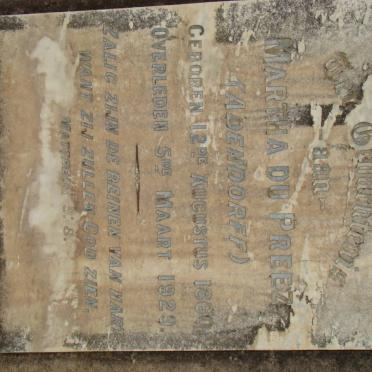 MARTHA DU PREEZ
(LADENDORFF)
GEBOREN 12DE AUGUSTUS
OVERLEDEN 5DE MAART 1929.
ZALIG ZIJN DE REINEN VAN HART
WANT ZIJ ZULLEN GOD ZIEN.